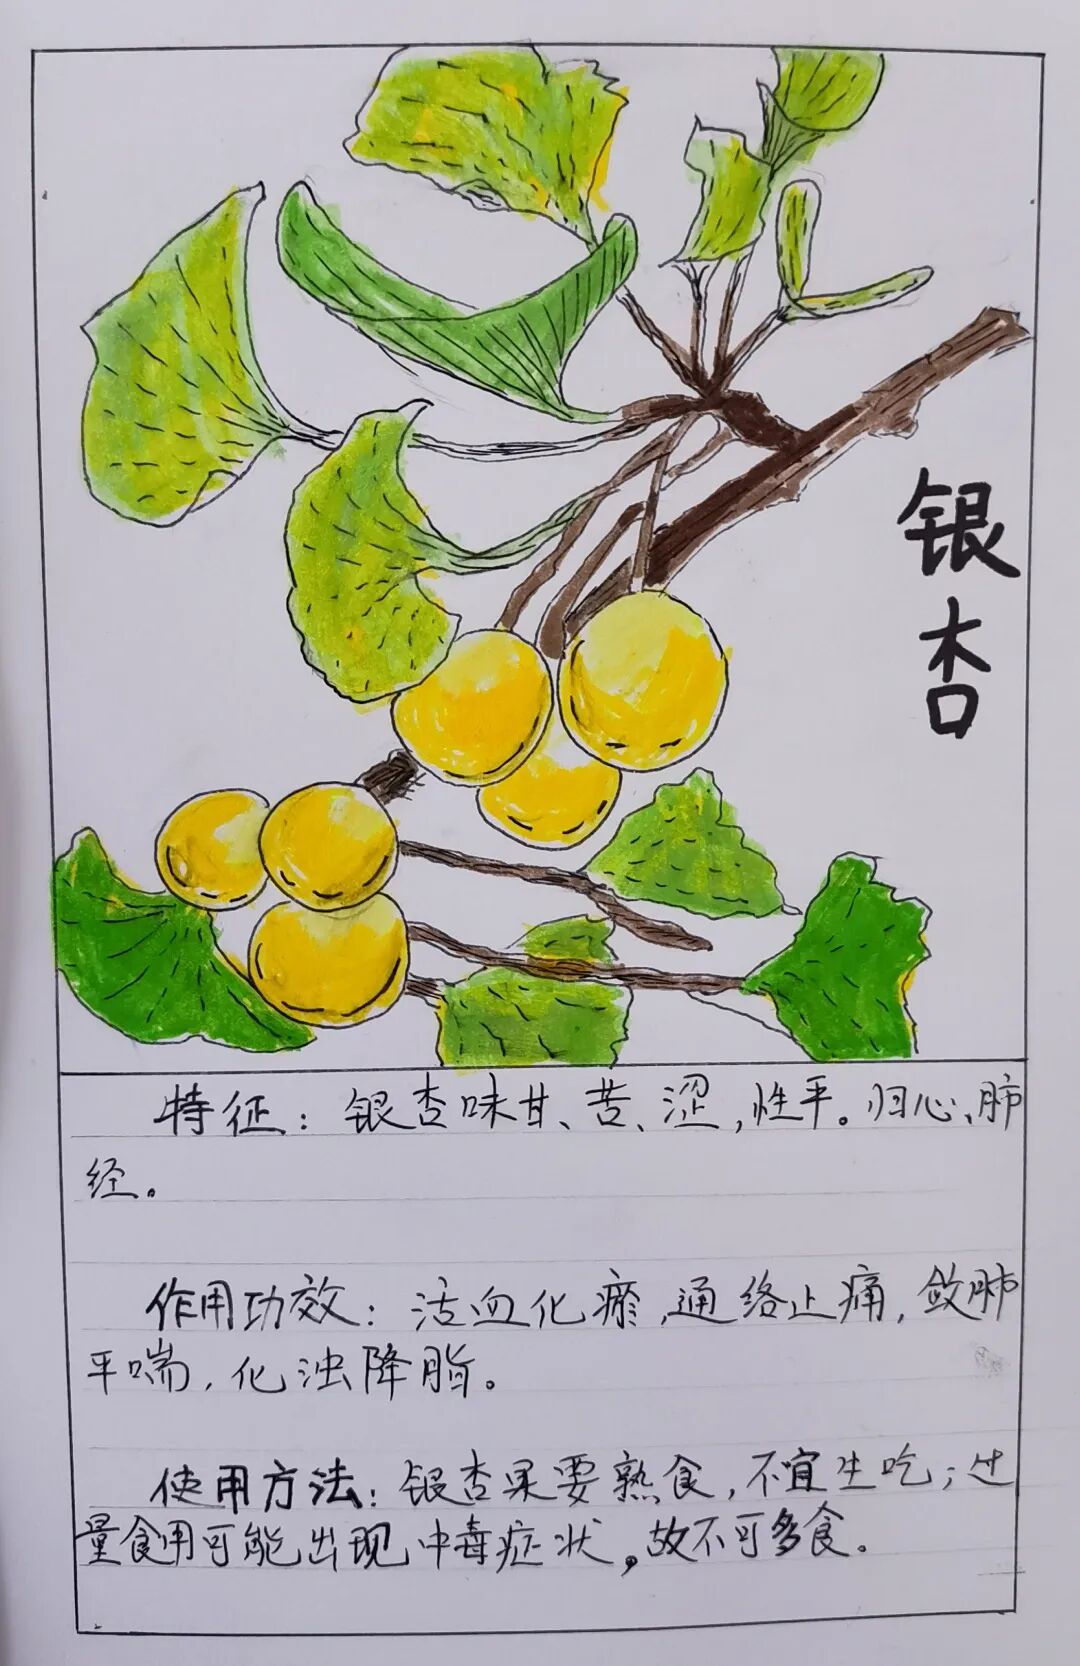 银杏
特征：银杏味甘、苦、涩，性平。归心、肺
经。
作用功效：活血化瘀，通络止痛，敛肺
平喘，化浊降脂。
使用方法：银杏果要熟食，不宜生吃；过
量食用可能出现中毒症状。故不可多食。